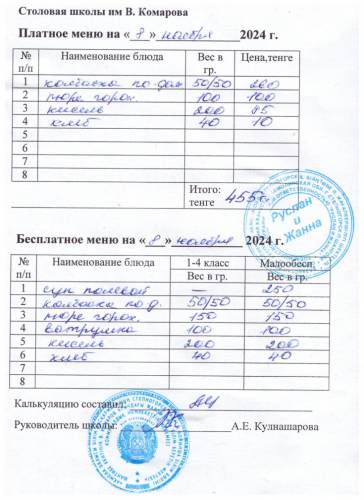 Столовая школы им В. Комарова
Платное меню на « 8 » ноября 2024 г.
№ п/п Наименование блюда Вес в гр. Цена,тенге
1 колбаска по-дом 50/50 260
2 пюре горох. 100 100
3 кисель 200 85
4 хлеб 40 10
5
6
7
8
Итого: тенге 455
Руслан
и
Жанна
Бесплатное меню на « 8 » ноября 2024 г.
№ п/п Наименование блюда 1-4 класса Малообесп
Вес в гр. Вес в гр.
1 суп полевой — 250
2 колбаска по д. 50/50 50/50
3 пюре горох. 150 150
4 ватрушка 100 100
5 кисель 200 200
6 хлеб 40 40
7
8
Калькуляцию составил:
Руководитель школы: А.Е. Кулнашарова